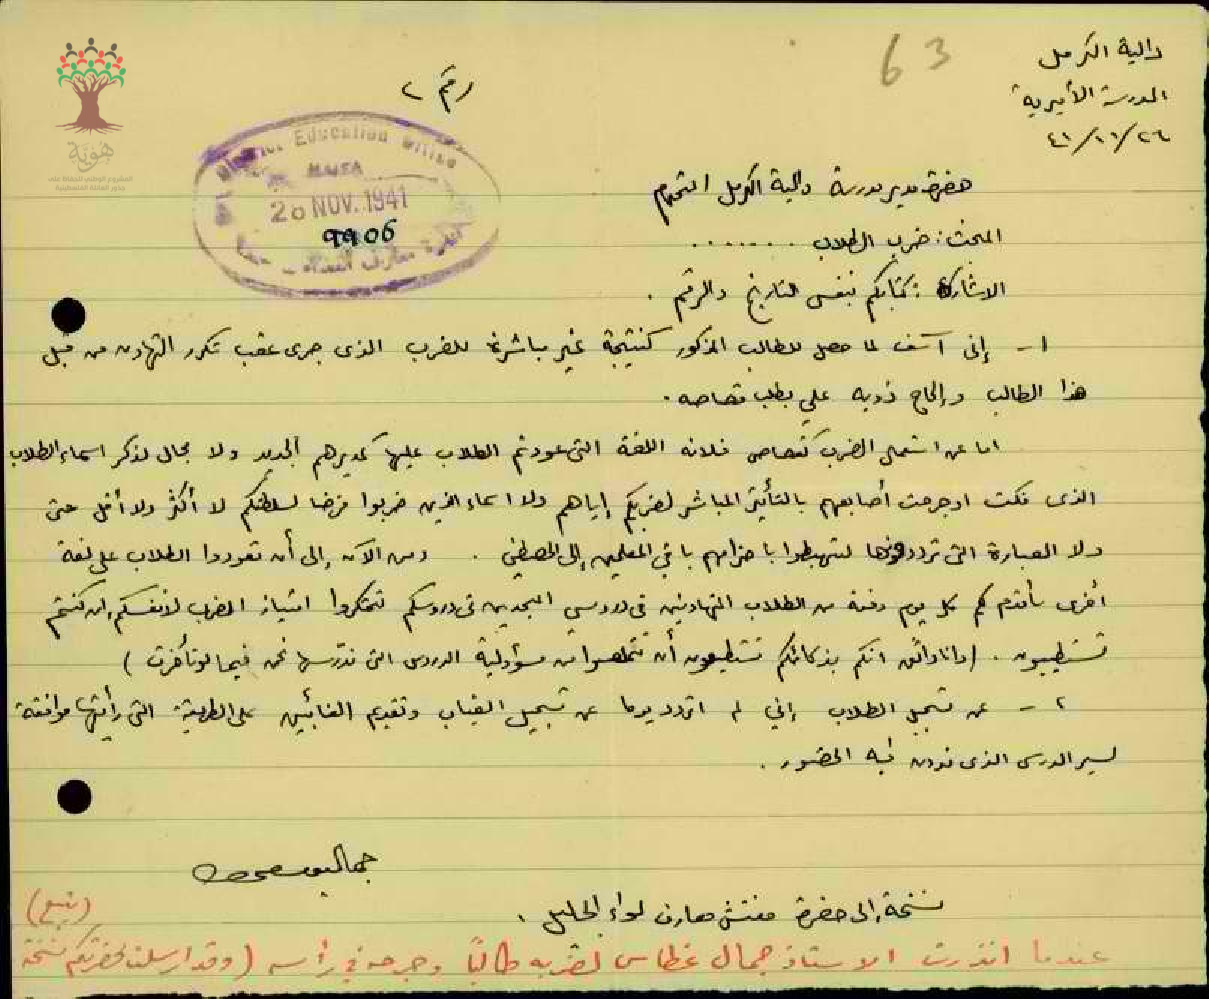 دالية الكرمل
المدرسة الأميرية
٤١/١١/٢٦
63
رقم ٢
District Education Office
HAIFA
26 NOV. 1941
9906
هوية
حضرة مدير مدرسة دالية الكرمل المحترم
المبحث: ضرب الطلاب . . . . . . .
الاشارة: كتابكم بنفس التاريخ والرقم .
١ - إني آسف لما حصل للطالب المذكور كنتيجة غير مباشرة للضرب الذي جرى عقب تكرر التهاون من قبل
هذا الطالب وإلحاح ذويه علي بطلب قصاصه .
اما عن استعمال الضرب كقصاص فلانه اللغة التي عودتم الطلاب عليها كمديرهم الجديد ولا مجال لذكر اسماء الطلاب
الذي فكت او جرحت أصابعهم بالتأثير المباشر لضربكم إياهم ولا اسماء الذين ضربوا فرضا لسلطتكم لا أكثر ولا أقل حتى
ولا العبارة التي ترددونها لتهبطوا باحترامهم باقي المعلمين إلى الحضيض . ومن الآن إلى أن تعودوا الطلاب على لغة
أخرى سأقدم لكم كل يوم دفعة من الطلاب المتهاونين في دروسي المجدين في دروسكم لتحتكروا امتياز الضرب لأنفسكم إن كنتم
تستطيبون . (وانا واثق انكم بذكائكم تستطيعون أن تتملصوا من مسؤولية الدروس التي ندرسها نحن فيما لو تأخرت )
٢ - عن تسجيل الطلاب إني لم اتردد يوما عن تسجيل الغياب وتقديم الغائبين على الطريقة التي رأيتها موافقة
لسير الدرس الذي تودون فيه الحضور .
نسخة إلى حضرة مفتش معارف لواء الجليل .
(يتبع)
عندما انذرت الاستاذ جمال غطاس لضربه طالباً وجرحه في رأسه (وقد ارسلت لحضرتكم نسخة